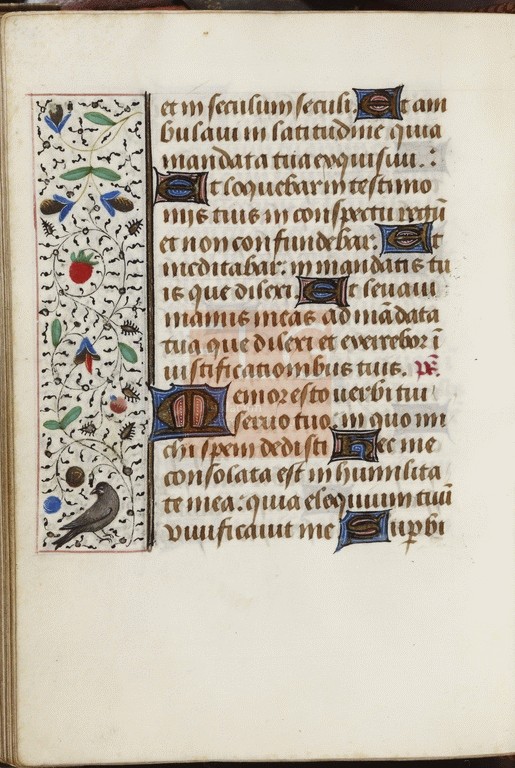 et in seculum seculi. Et am
bulaui in latitudine quia
mandata tua exquisiui. :
Et loquebar in testimo
nijs tuis in conspectu regū
et non confundebar. Et
meditabar: in mandatis tu
is que dilexi. Et leuaui
manus meas ad mādata
tua que dilexi et exercebor ī
iustificationibus tuis. ps̄.
Memor esto uerbi tui
seruo tuo: in quo mi
chi spem dedisti Hec me
consolata est in humilita
te mea: quia eloquium tuū
viuificauit me Suꝑbi